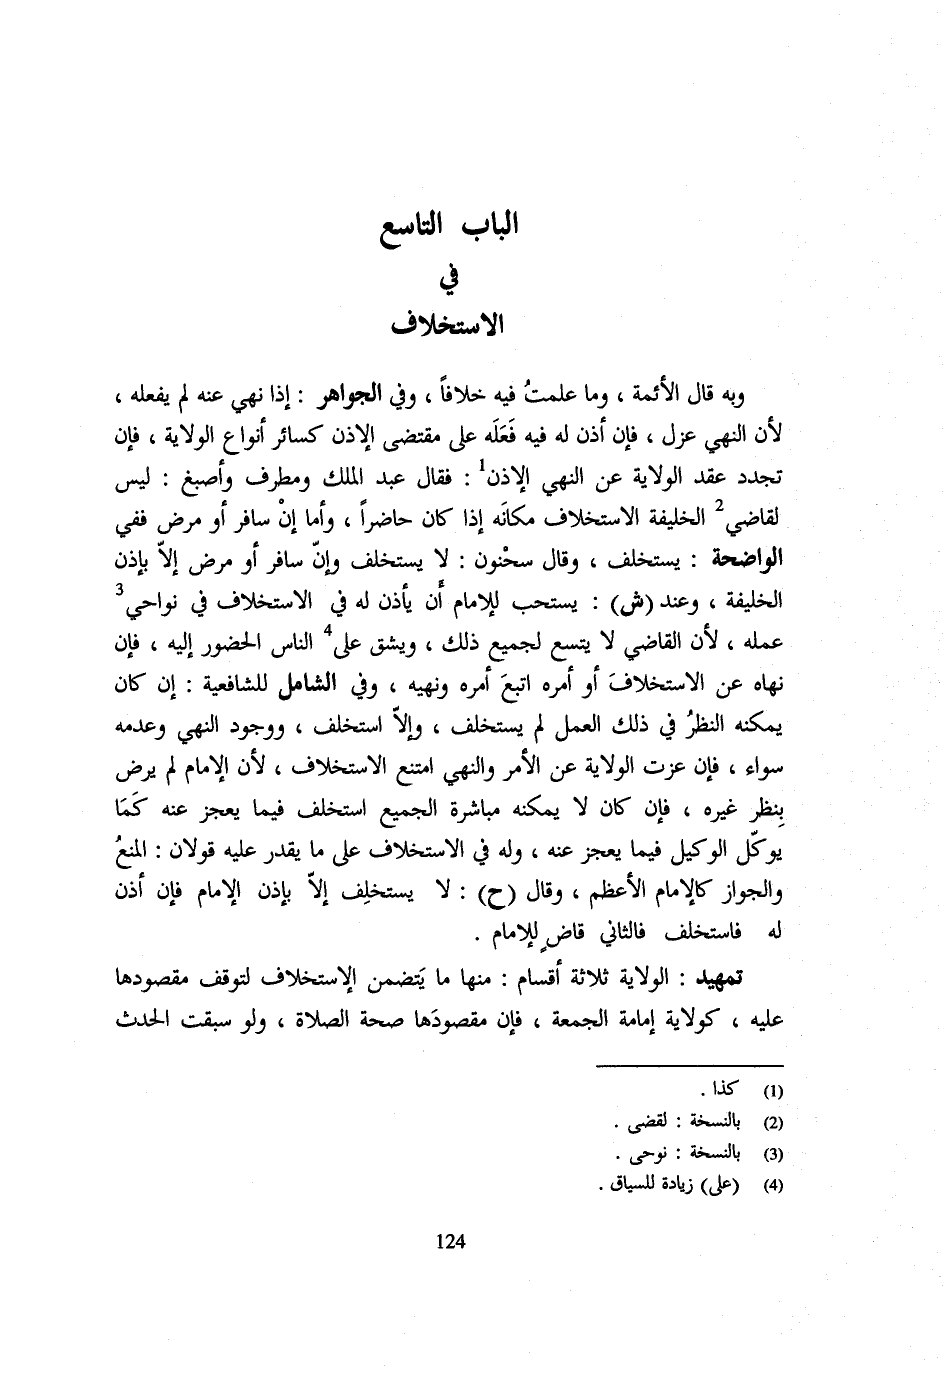 الباب التاسع
في
الاستخلاف
وبه قال الأئمة ، وما علمتُ فيه خلافاً ، وفي الجواهر : إذا نهي عنه لم يفعله ،
لأن النهي عزل ، فإن أذن له فيه فَعَلَه على مقتضى الإذن كسائر أنواع الولاية ، فإن
تجدد عقد الولاية عن النهي الإذن1 : فقال عبد الملك ومطرف وأصبغ : ليس
لقاضي2 الخليفة الاستخلاف مكانَه إذا كان حاضراً ، وأما إنْ سافر أو مرض ففي
الواضحة : يستخلف ، وقال سحْنون : لا يستخلف وإنّ سافر أو مرض إلاّ بإذن
الخليفة ، وعند (ش) : يستحب للإمام أن يأذن له في الاستخلاف في نواحي3
عمله ، لأن القاضي لا يتسع لجميع ذلك ، ويشق على4 الناس الحضور إليه ، فإن
نهاه عن الاستخلافَ أو أمره اتبعَ أمره ونهيه ، وفي الشامل للشافعية : إن كان
يمكنه النظرُ في ذلك العمل لم يستخلف ، وإلاّ استخلف ، ووجود النهي وعدمه
سواء ، فإن عزت الولاية عن الأمر والنهي امتنع الاستخلاف ، لأن الإمام لم يرض
بِنظر غيره ، فإن كان لا يمكنه مباشرة الجميع استخلف فيما يعجز عنه كَمَا
يوكّل الوكيل فيما يعجز عنه ، وله في الاستخلاف على ما يقدر عليه قولان : المنعُ
والجواز كالإمام الأعظم ، وقال (ح) : لا يستخلِف إلاّ بإذن الإمام فإن أذن
له فاستخلف فالثاني قاضٍ للإمام .
تمهيد : الولاية ثلاثة أقسام : منها ما يَتضمن الإستخلاف لتوقف مقصودها
عليه ، كولاية إمامة الجمعة ، فإن مقصودَها صحة الصلاة ، ولو سبقت الحدث
(1) كذا .
(2) بالنسخة : لقضى .
(3) بالنسخة : نوحى .
(4) (على) زيادة للسياق .
124